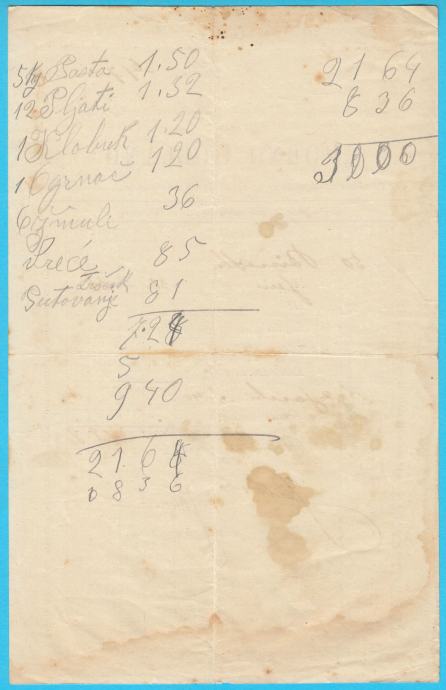 5 Kg Pasta 1.50
12 Pljati 1.32
1 Klobuk 1.20
1 Ogrnač 120
6 Žmuli 36
Vreće 85
Trošak
Putovanje 81
7.24
5
940
21.64
0836
2164
836
3000